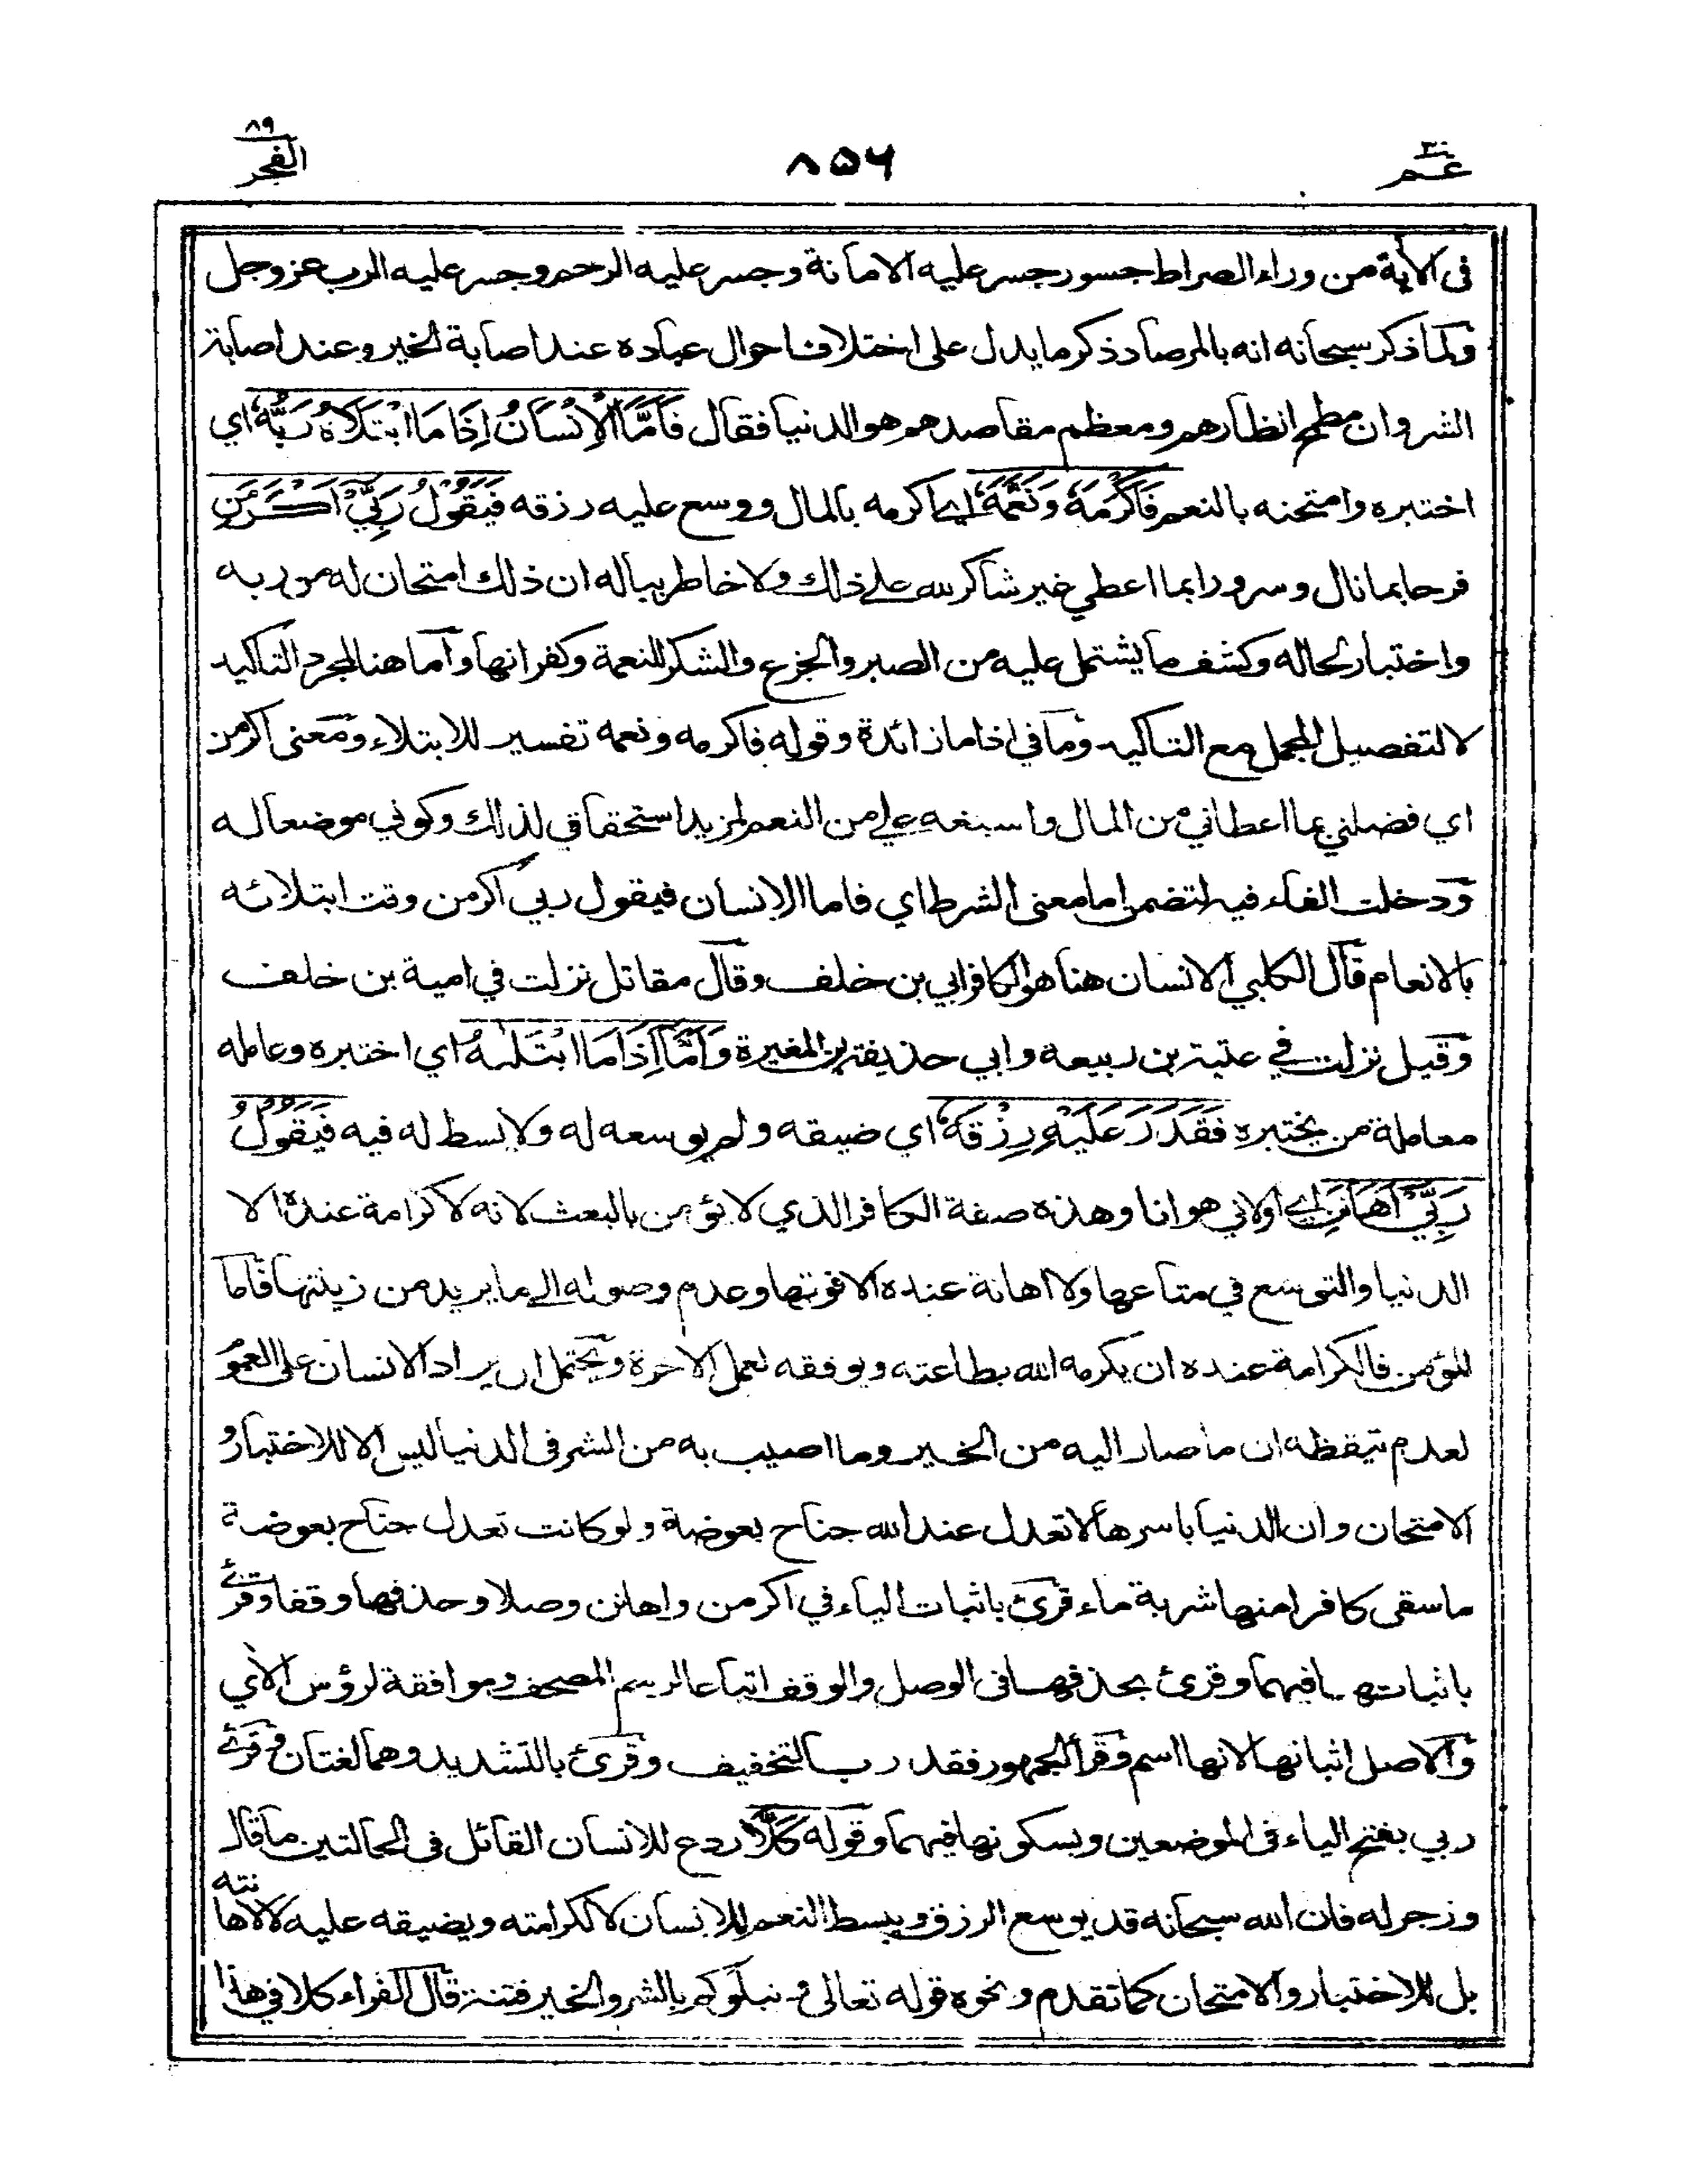 ٣٠
عم
٨٥٦
٨٩
الفجر
فى الأية من وراء الصراط جسور جسر عليه الامانة وجسر عليه الرحم وجسر عليه الرب عز وجل
ولما ذكر سبحانه انه بالمرصاد ذكر ما يدل على اختلاف احوال عباده عند اصابة الخير وعند اصابة
الشر وان مطمح انظارهم ومعظم مقاصدهم هو الدنيا فقال فَاَمَّا الْاِنْسَانُ اِذَا مَا ابْتَلَاهُ رَبُّهُ اي
اختبره وامتحنه بالنعم فَاَكْرَمَهُ وَنَعَّمَهُ اي اكرمه بالمال ووسع عليه رزقه فَيَقُوْلُ رَبِّيْ اَكْرَمَنِ
فرحا بما نال وسرورا بما اعطي غير شاكر لله على ذلك ولا خاطر بباله ان ذلك امتحان له من ربه
واختبار لحاله وكشف ما يشتمل عليه من الصبر والجزع والشكر للنعمة وكفرانها وآما هنا لمجرد التاكيد
لا لتفصيل المجمل مع التاكيد وما في اذا ما زائدة وقوله فاكرمه ونعمه تفسير للابتلاء ومعنى اكرمن
اي فضلني بما اعطاني من المال واسبغه علي من النعم لمزيد استحقاقي لذلك وكوني موضعا له
ودخلت الفاء فيه لتضمن اما معنى الشرط اي فاما الانسان فيقول ربي اكرمن وقت ابتلائه
بالانعام قال الكلبي الانسان هنا هو الكافر ابي بن خلف وقال مقاتل نزلت في امية بن خلف
وقيل نزلت في عتبة بن ربيعة وابي حذيفة بن المغيرة وَاَمَّا اِذَا مَا ابْتَلٰىهُ اي اختبره وعامله
معاملة من يختبره فَقَدَرَ عَلَيْهِ رِزْقَهُ اي ضيقه ولم يوسعه له ولا بسط له فيه فَيَقُوْلُ
رَبِّيْ اَهَانَنِ اي اولاني هوانا وهذه صفة الكافر الذي لا يؤمن بالبعث لانه لا كرامة عنده الا
الدنيا والتوسع في متاعها ولا اهانة عنده الا فوتها وعدم وصوله الى ما يريد من زينتها فاما
المؤمن فالكرامة عنده ان يكرمه الله بطاعته ويوفقه لعمل الاخرة ويحتمل ان يراد الانسان على العموم
لعدم تيقظه ان ما صار اليه من الخير وما اصيب به من الشر فى الدنيا ليس الا للاختبار و
الامتحان وان الدنيا باسرها لا تعدل عند الله جناح بعوضة ولو كانت تعدل جناح بعوضة
ما سقى كافرا منها شربة ماء قرئ باثبات الياء في اكرمن واهانن وصلا وحذفها وقفا وقرئ
باثباتها فيهما وقرئ بحذفها فى الوصل والوقف اتباعا لرسم المصحف وموافقة لرؤس الأي
والاصل اثباتها لانها اسم وقرأ الجمهور فقدر بالتخفيف وقرئ بالتشديد وهما لغتان وقرئ
ربي بفتح الياء فى الموضعين وبسكونها فيهما وقوله كَلَّا ردع للانسان القائل فى الحالتين ما قال
وزجر له فان الله سبحانه قد يوسع الرزق ويبسط النعم للانسان لا لكرامته ويضيقه عليه لا لاهانته
بل للاختبار والامتحان كما تقدم ونحوه قوله تعالى ونبلوكم بالشر والخير فتنة قال الفراء كلا في هذا